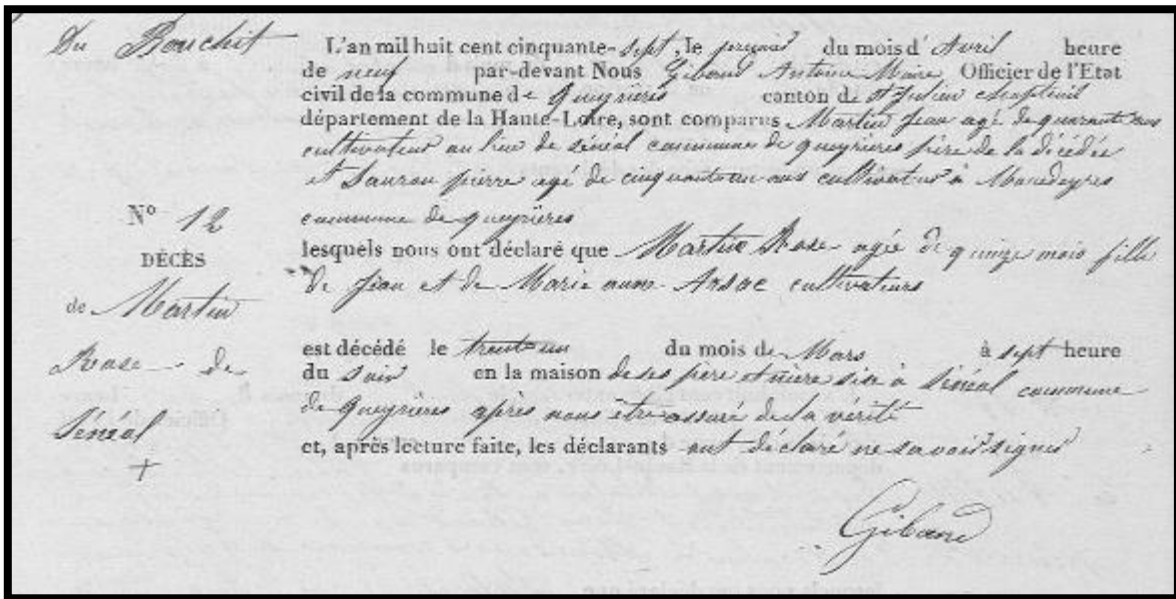 Du Bouchit
L'an mil huit cent cinquante-sept, le premier du mois d'Avril heure
de neuf par-devant Nous Giband Antoine Maire Officier de l'Etat
civil de la commune de Queyrières canton de St Julien Chapteuil
département de la Haute-Loire, sont comparus Martin Jean agé de quarante ans
cultivateur au lieu de Sénéal commune de queyrières père de la décédée
et Sauron pierre agé de cinquante un ans cultivateur à Monedeyres
commune de queyrières
N° 12
DÉCÈS
de Martin
Rose de
Sénéal
lesquels nous ont déclaré que Martin Rose agée de quinze mois fille
de Jean et de Marie Arsac cultivateurs
est décédé le trente un du mois de Mars à sept heure
du soir en la maison de ses père et mère sise à Sénéal commune
de queyrières après nous être assuré de la vérité
et, après lecture faite, les déclarants ont déclaré ne savoir signer
Giband